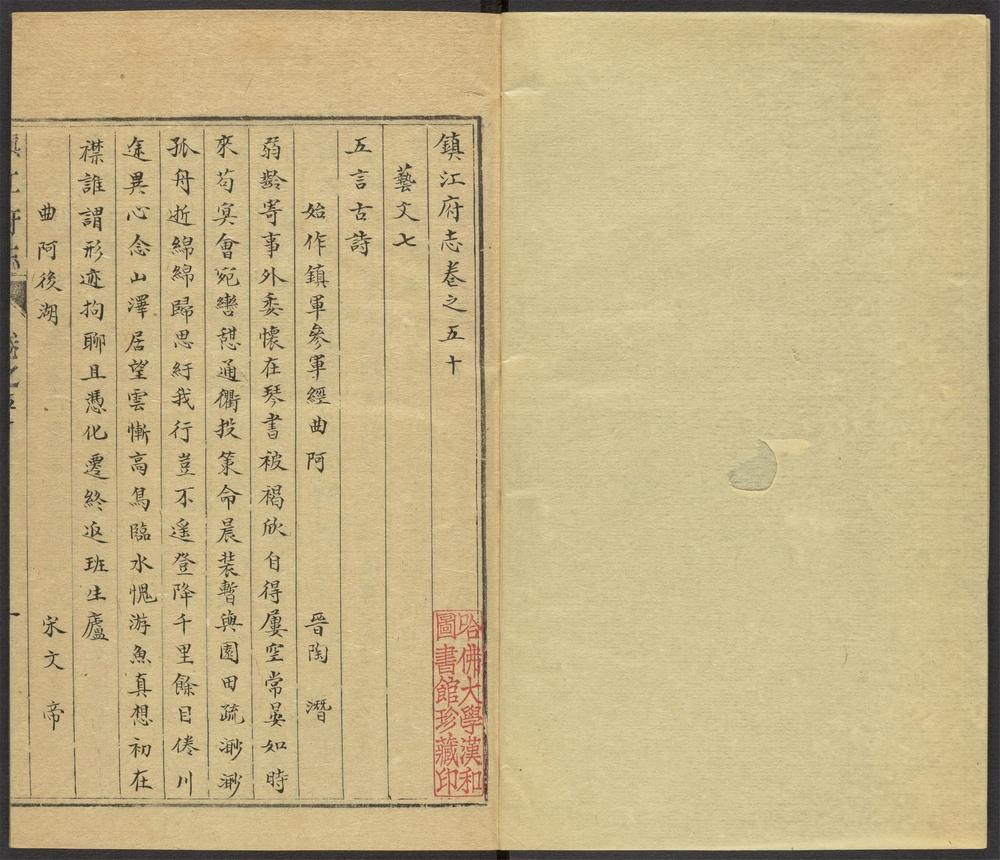 鎮江府志卷之五十
藝文七
五言古詩
始作鎮軍參軍經曲阿 晉陶潛
弱齡寄事外委懷在琴書被褐欣自得屢空常晏如時
來苟冥會宛轡憇通衢投策命晨裝暫與園田疏渺渺
孤舟逝綿綿歸思紆我行豈不遙登降千里餘目倦川
途異心念山澤居望雲慚高鳥臨水愧游魚真想初在
襟誰謂形迹拘聊且憑化遷終返班生廬
曲阿後湖 宋文帝
鎮江府志 卷之五十 一
哈佛大學漢和
圖書館珍藏印